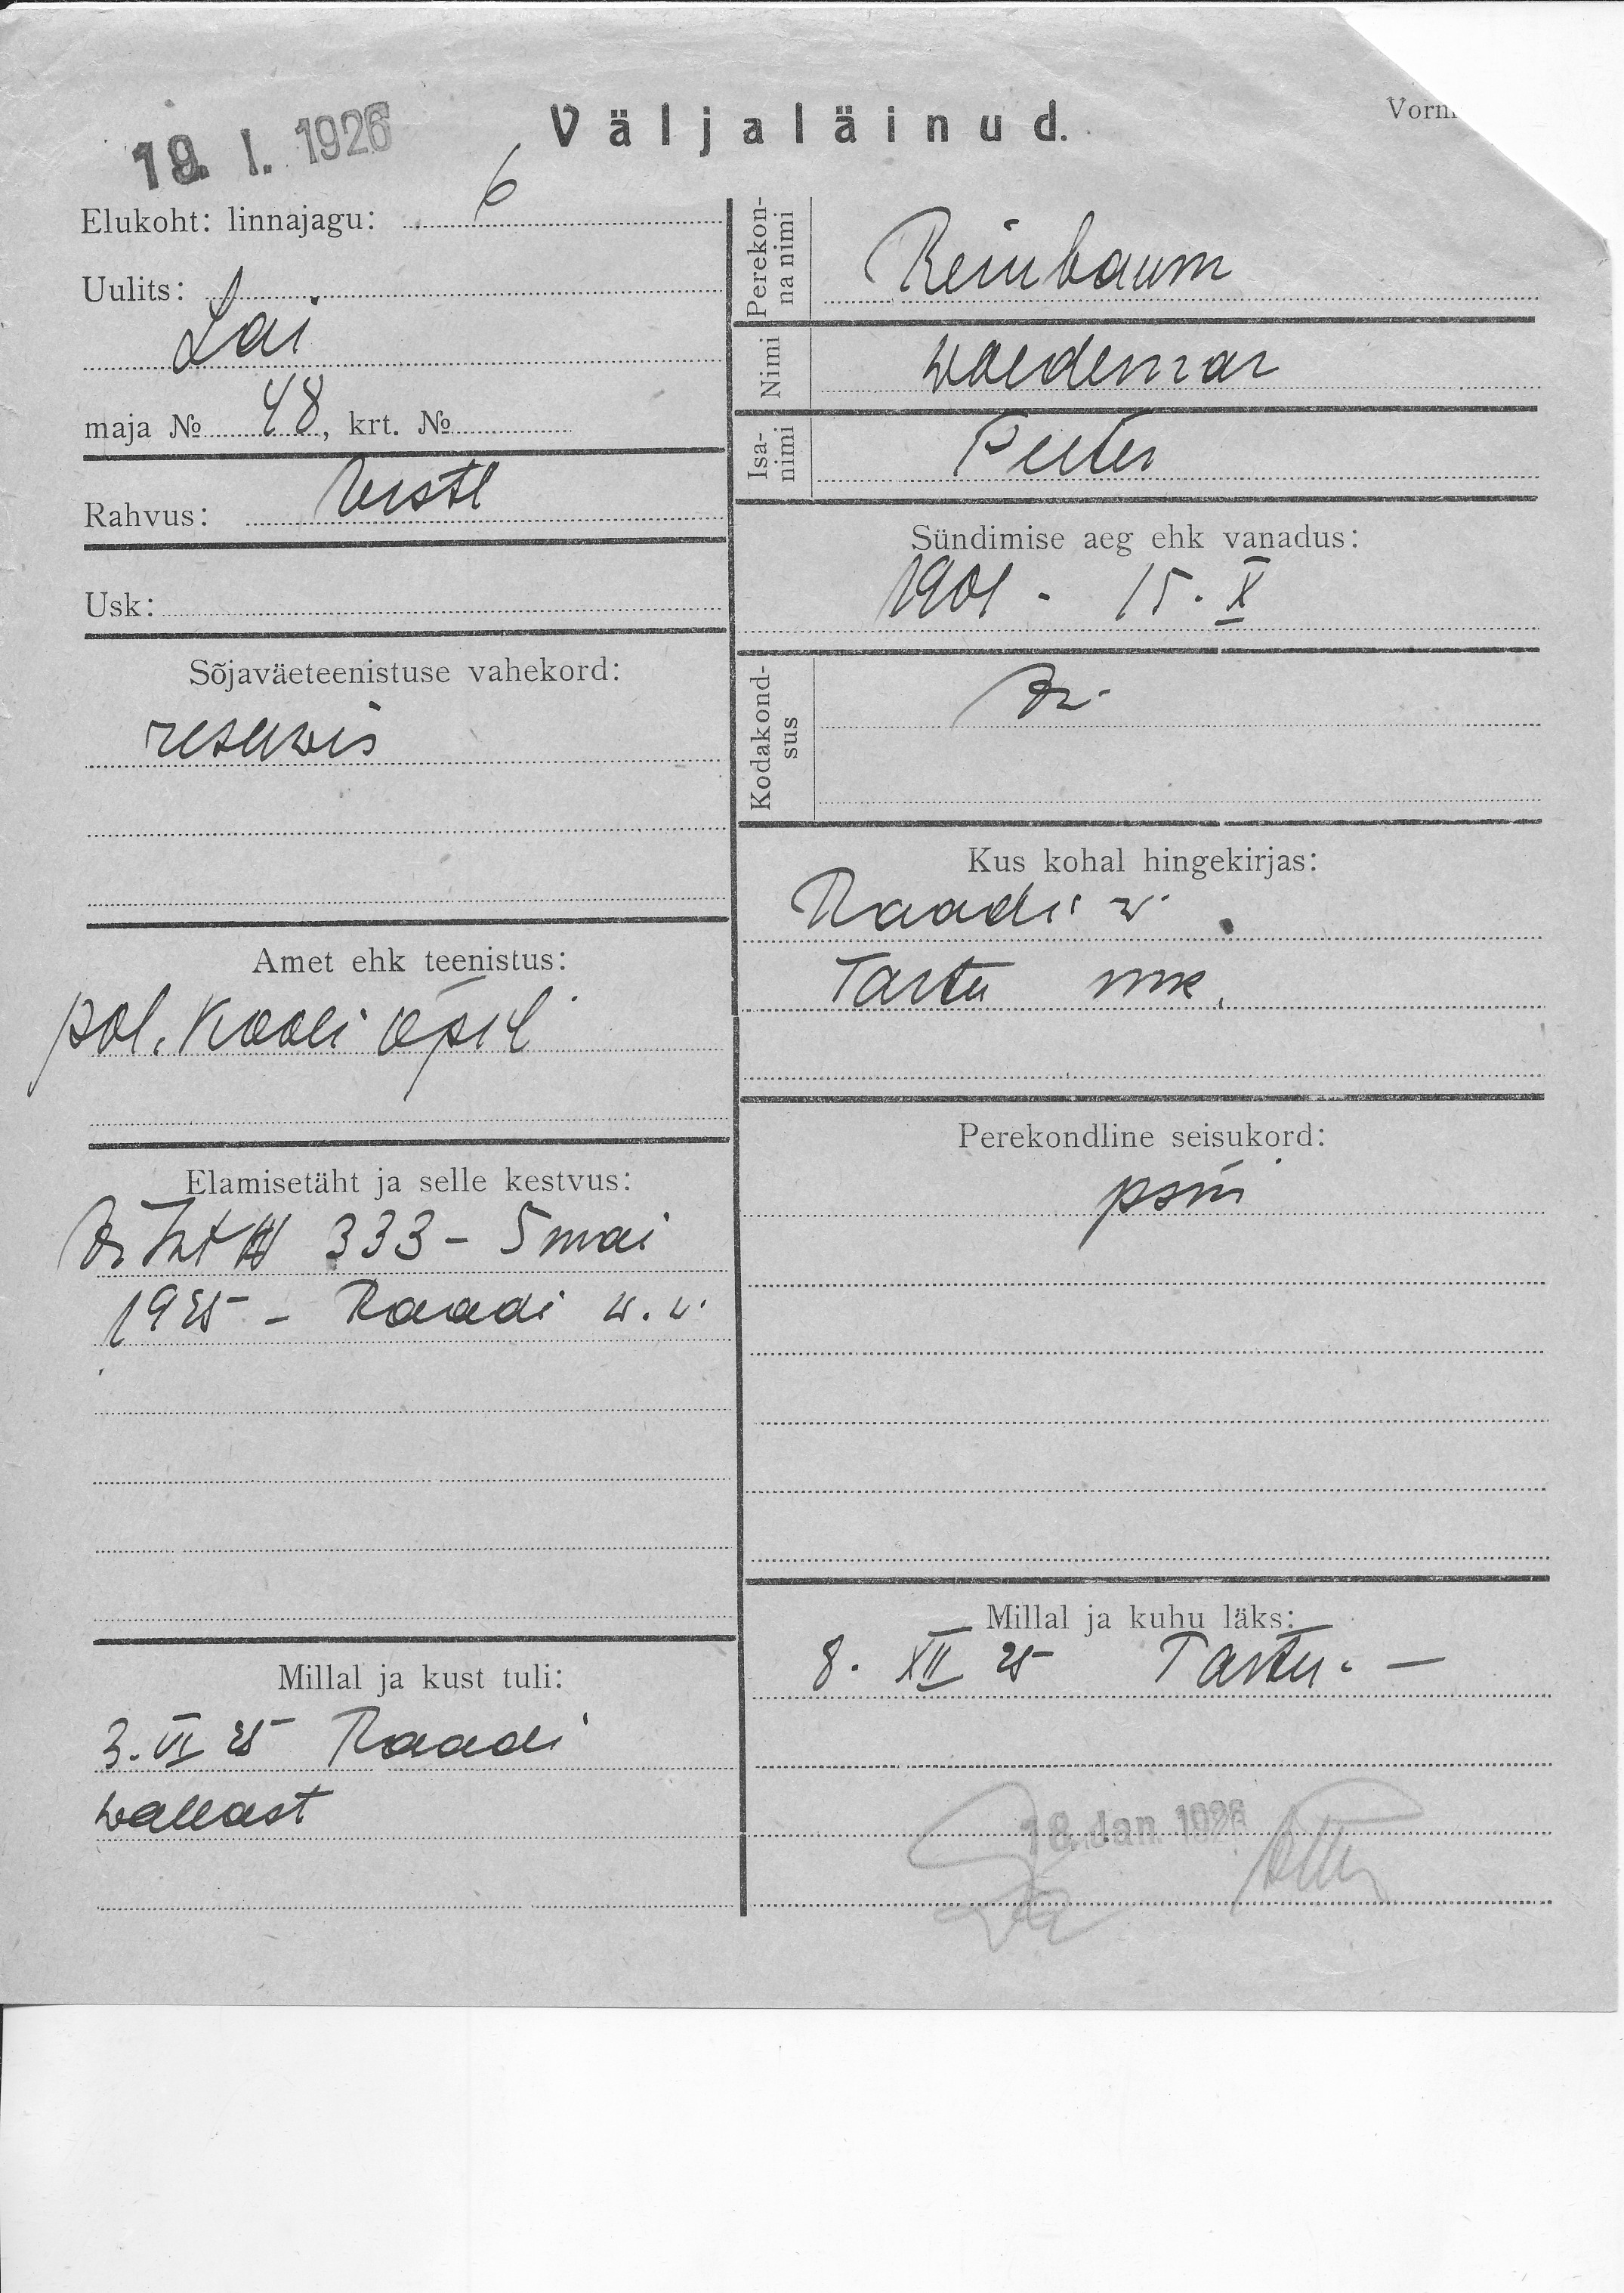 19. I. 1926
Väljaläinud.
Vorm
Elukoht: linnajagu: 6
Uulits:
Lai
maja № 48, krt. №
Rahvus: eestl
Usk:
Sõjaväeteenistuse vahekord:
reserwis
Amet ehk teenistus:
pol. kooli õpil
Elamisetäht ja selle kestvus:
333 - 5 mai
1925 - Raadi w. v.
Millal ja kust tuli:
3. VI 25 Raadi
wallast
Perekonna nimi
Reinbaum
Nimi
Woldemar
Isanimi
Peeter
Sündimise aeg ehk vanadus:
1901 - 15. X
Kodakondsus
Kus kohal hingekirjas:
Raadi w.
Tartu mk.
Perekondline seisukord:
psm
Millal ja kuhu läks:
8. XII 25 Tartu. —
18. Jan. 1926